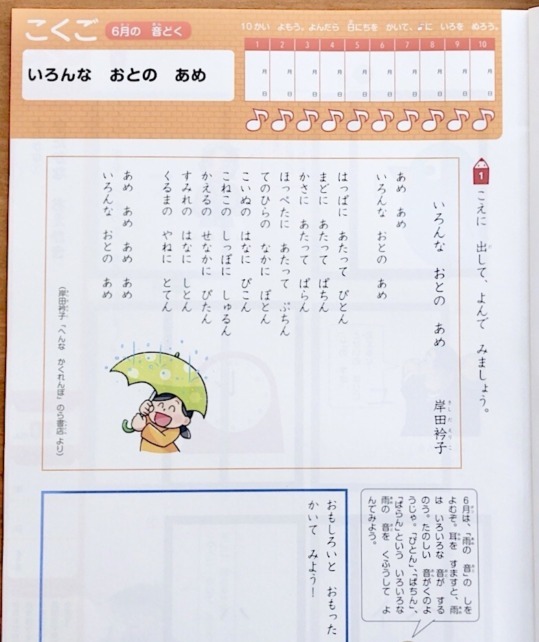 こくご
6月の 音どく
いろんな おとの あめ
10かい よもう。よんだら 日にちを かいて、♪に いろを ぬろう。
1 2 3 4 5 6 7 8 9 10
月 月 月 月 月 月 月 月 月 月
日 日 日 日 日 日 日 日 日 日
1 こえに 出して、よんで みましょう。
いろんな おとの あめ
岸田衿子
きしだえりこ
あめ あめ
いろんな おとの あめ
はっぱに あたって ぴとん
まどに あたって ぱちん
かさに あたって ぱらん
ほっぺたに あたって ぷちん
てのひらの なかに ぽとん
こいぬの はなに ぴこん
こねこの しっぽに しゅるん
かえるの せなかに ぴたん
すみれの はなに しとん
くるまの やねに とてん
あめ あめ あめ あめ
いろんな おとの あめ
(岸田衿子「へんな かくれんぼ」のら書店 より)
6月は、「雨の 音」の しを
よむぞ。耳を すますと、雨
は いろいろな 音が する
のう。たのしい 音がくのよ
うじゃ。「ぴとん」、「ぱちん」、
「ぱらん」という いろいろな
雨の 音を くふうして よ
んでみよう。
おもしろいと おもった
かいて みよう!